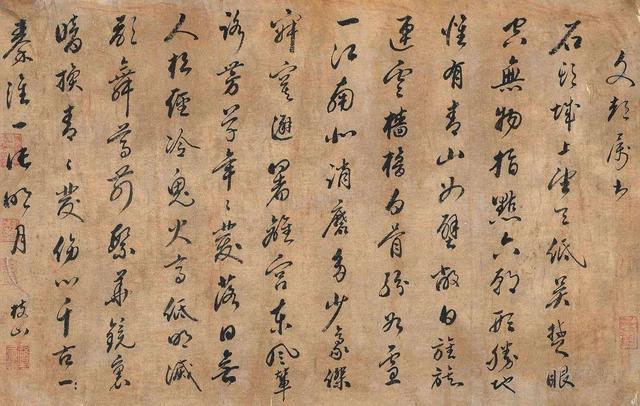 石頭城上望天低吳楚眼
空無物指點六朝形勝地
惟有青山如壁蔽日旌旗
連雲檣櫓白骨紛如雪
一江南北消磨多少豪傑
寂寞避暑離宮東風輦
路芳草年〻發落日無
人松徑冷鬼火高低明滅
歌舞尊前繁華鏡裏
暗換青〻髮傷心千古
秦淮一片明月
枝山